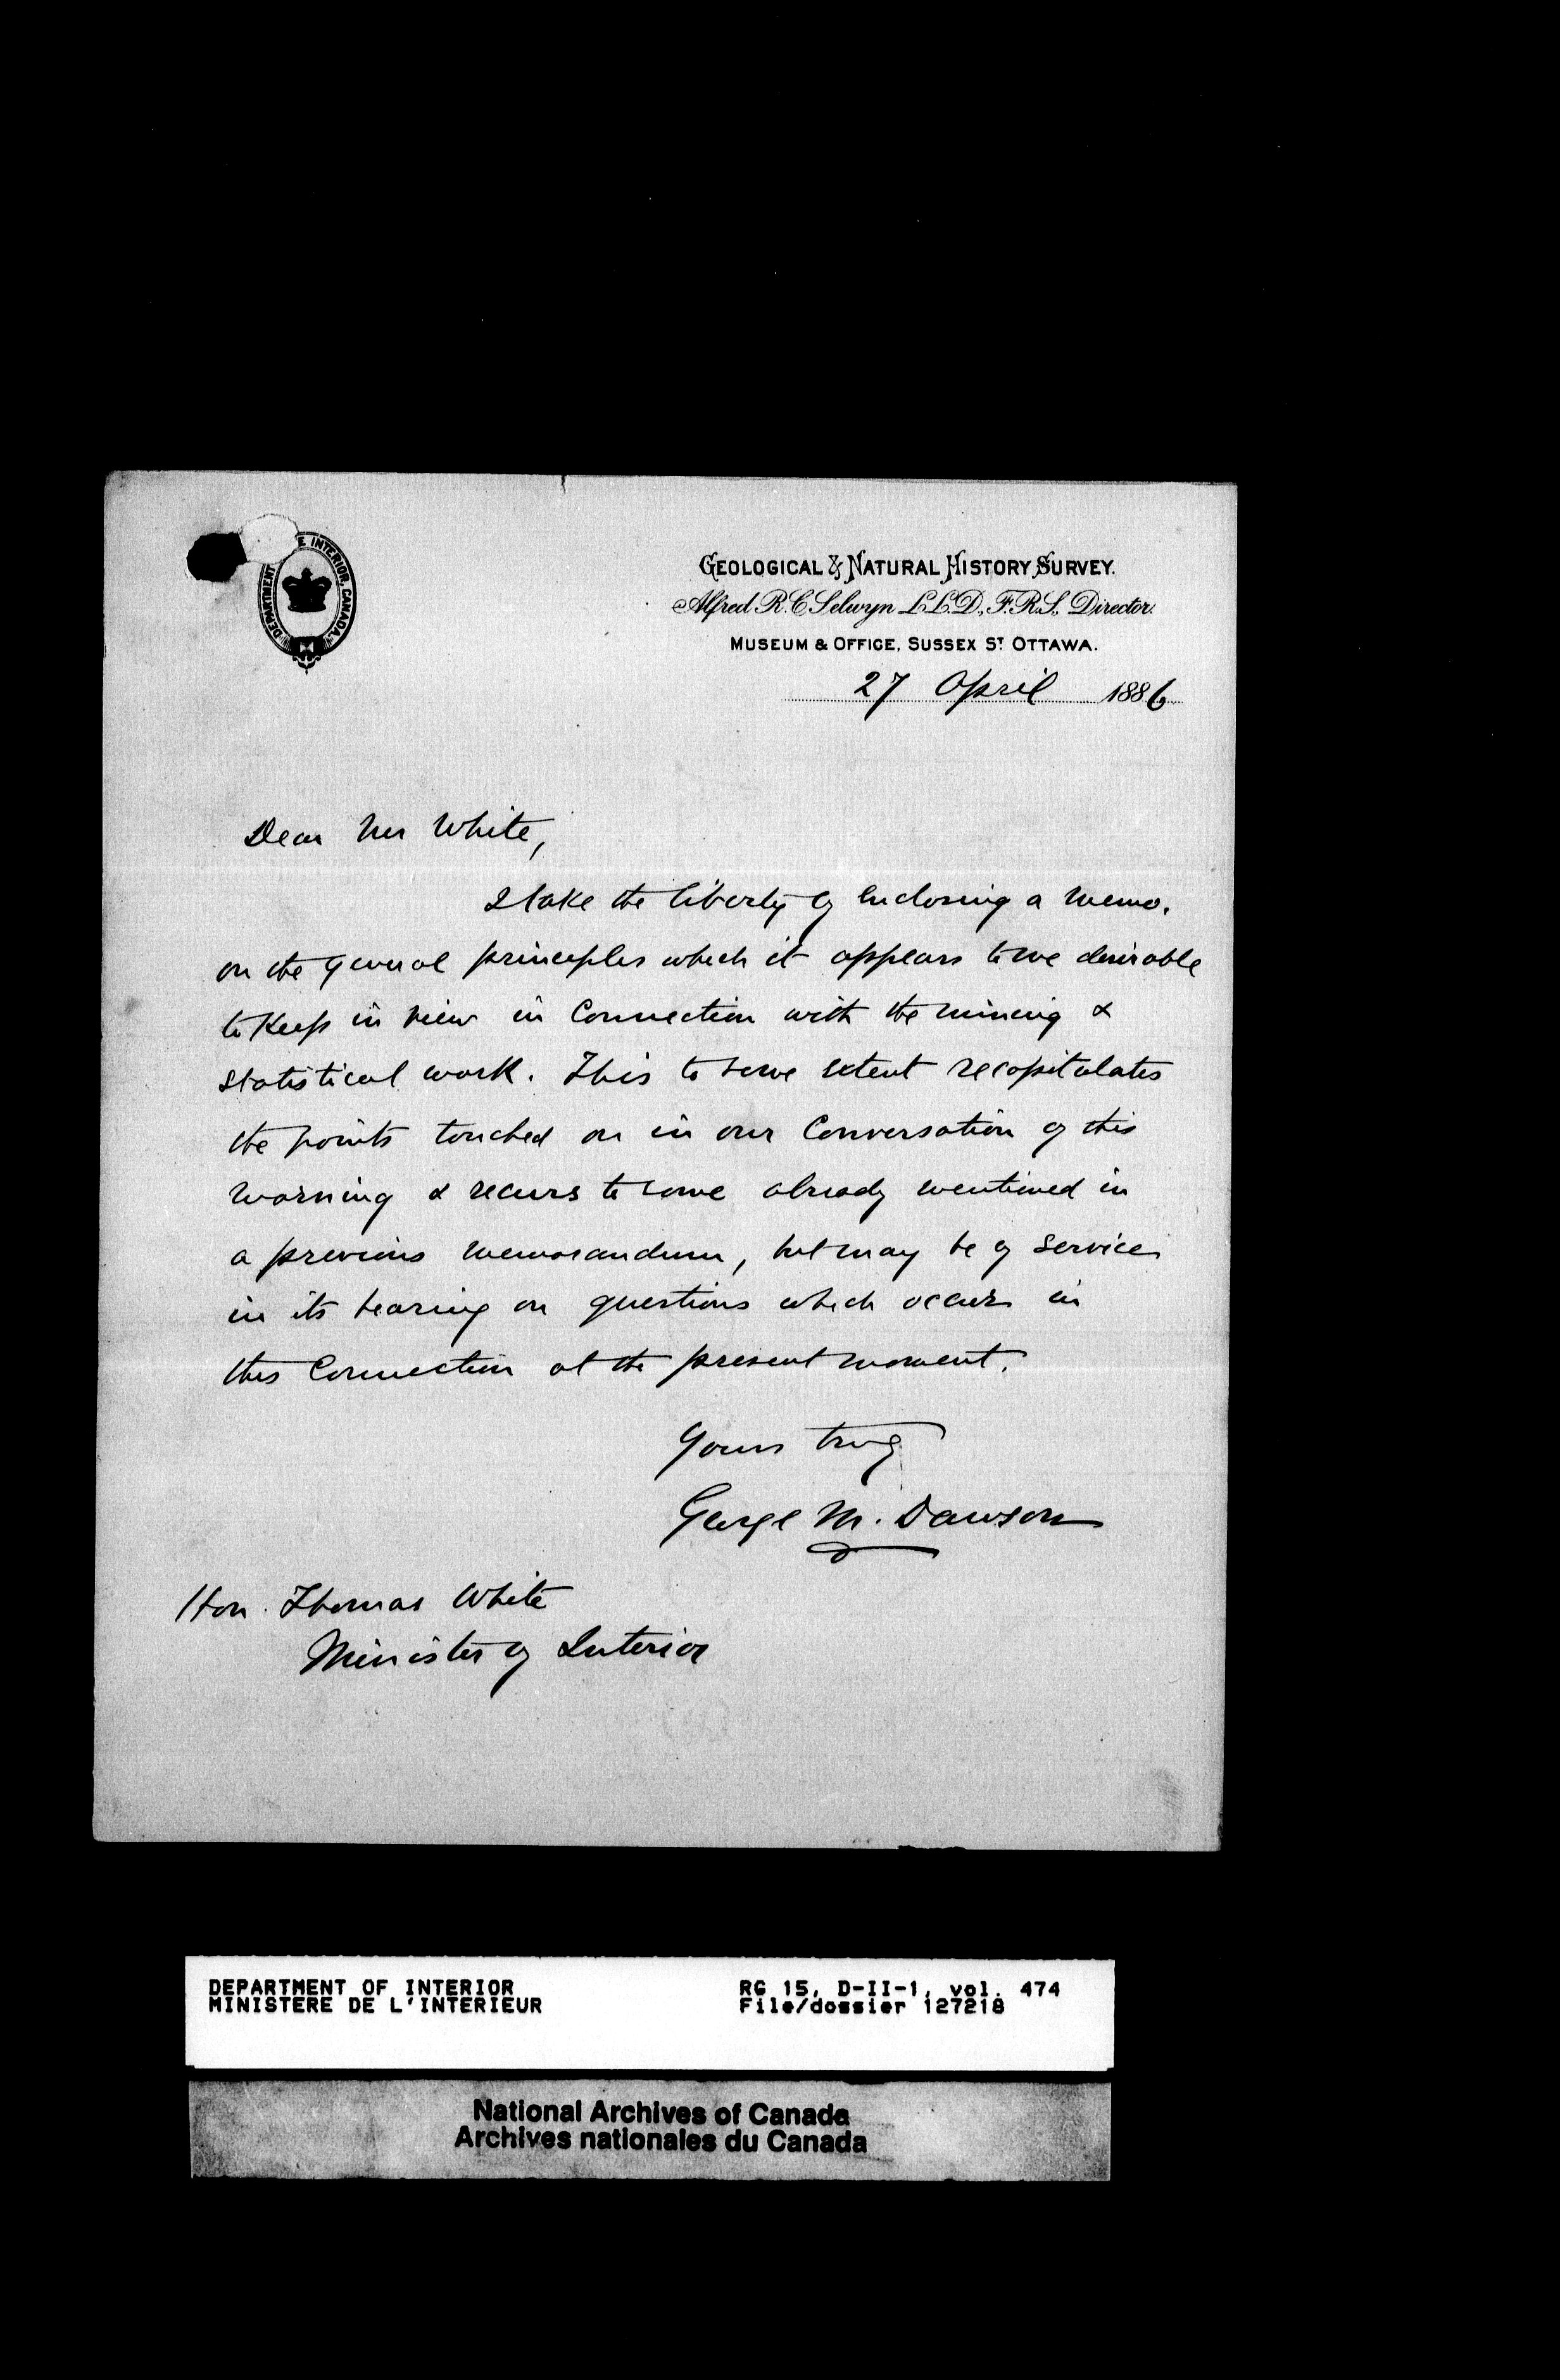 DEPARTMENT E INTERIOR, CANADA.
GEOLOGICAL & NATURAL HISTORY SURVEY.
Alfred R. C. Selwyn LL.D., F.R.S., Director.
MUSEUM & OFFICE, SUSSEX ST OTTAWA.
27 April 1886
Dear Mr White,
I take the liberty of enclosing a memo.
on the general principles which it appears to me desirable
to keep in view in connection with the mining &
statistical work. This to some extent recapitulates
the points touched on in our conversation of this
morning & recurs to some already mentioned in
a previous memorandum, but may be of service
in its bearing on questions which occur in
this connection at the present moment.
Yours truly
George M. Dawson
Hon. Thomas White
Minister of Interior
DEPARTMENT OF INTERIOR
MINISTERE DE L'INTERIEUR
RG 15, D-II-1, vol. 474
File/dossier 127218
National Archives of Canada
Archives nationales du Canada